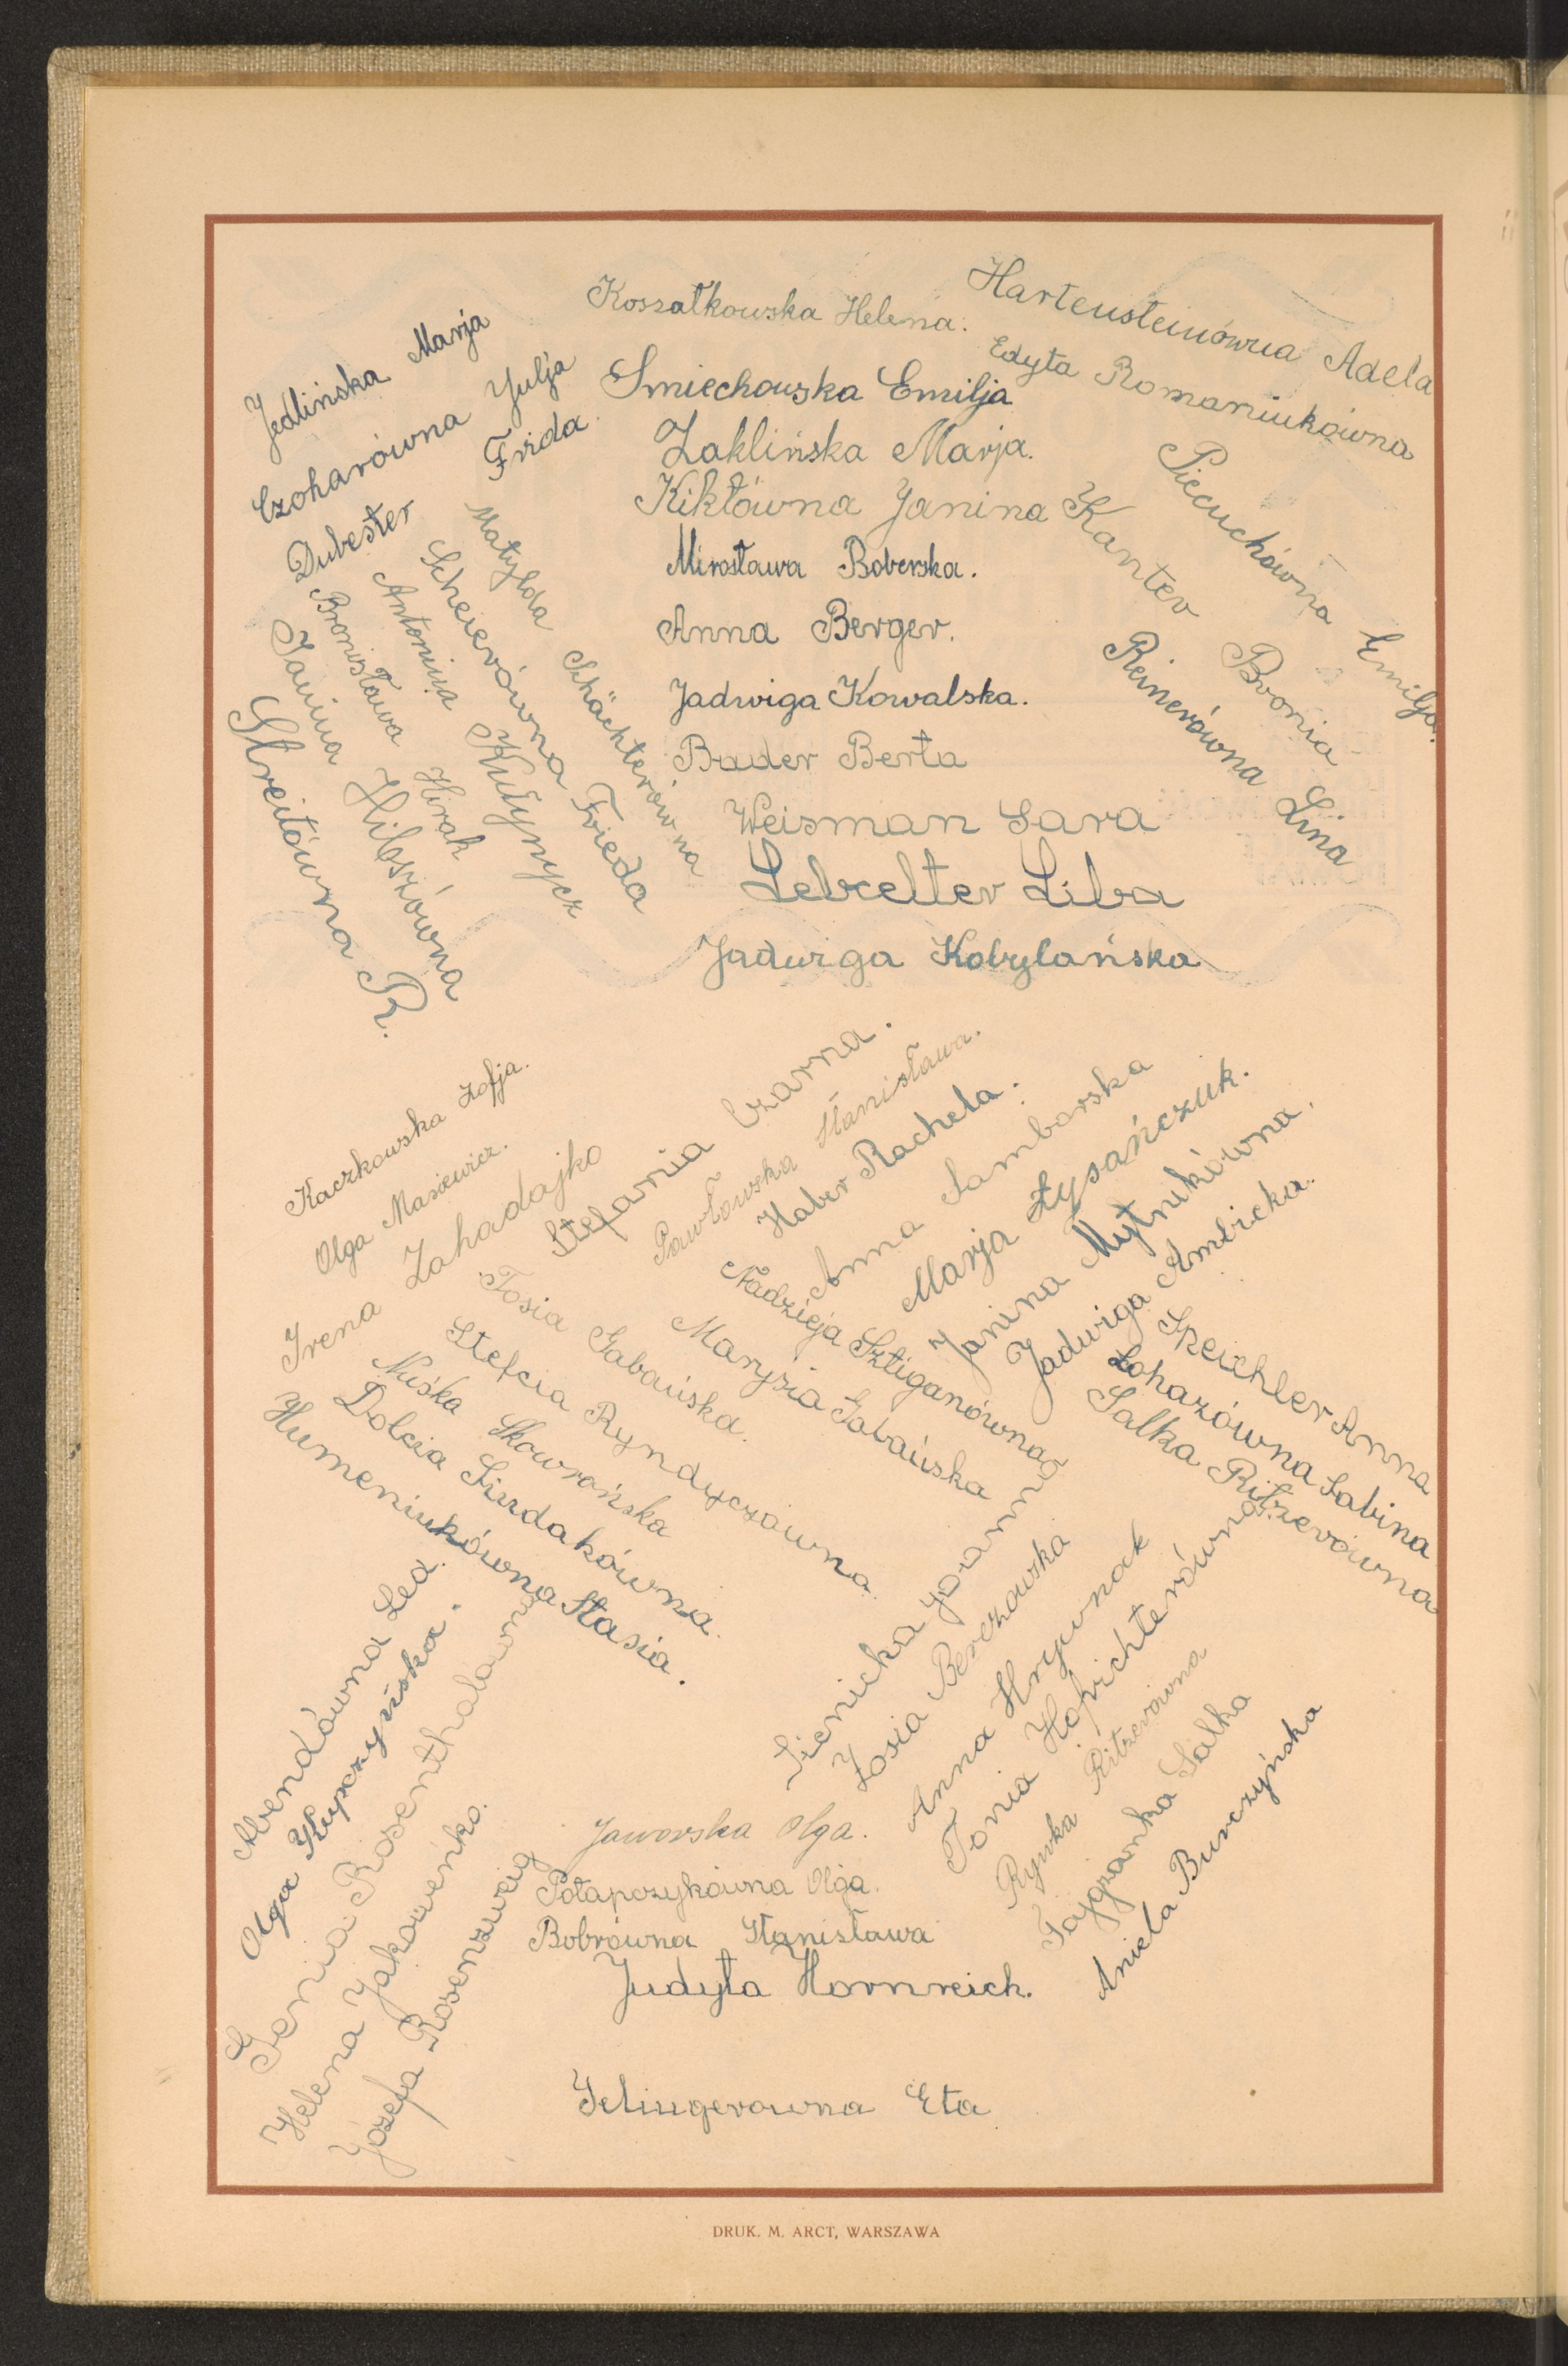 Koszałkowska Helena.
Hartensteinówna Adela
Edyta Romaniukówna
Jedlińska Marja
Czoharówna Julja
Dubester Frida
Smiechowska Emilja
Zaklińska Marja.
Kiktówna Janina
Kanter Bronia
Piecuchówna Emilja.
Reinerówna Lina
Matylda Schächterówna
Scheierówna Frieda
Antonina Kutynycz
Bronisława Hirak
Janina Hibszówna
Streitówna R.
Mirosława Boberska.
Anna Berger.
Jadwiga Kowalska.
Bader Berta
Weisman Sara
Lebzelter Liba
Jadwiga Kobylańska
Kaczkowska Zofja.
Olga Masiewicz.
Irena Zahadajko
Stefania Czarna.
Pawłowska Stanisława.
Haber Rachela.
Anna Samborska
Marja Łysańczuk.
Janina Mytnikówna.
Jadwiga Ambicka.
Speichler Anna
Zoharówna Sabina
Salka Ritzerówna
Nadzieja Sztiganówna
Marysia Gabańska
Tosia Gabańska.
Stefcia Ryndyczówna
Nuśka Skowrońska
Dolcia Siudakówna.
Humeniukówna Stasia.
Abendówna Lea.
Olga Kupczyńska.
Genia Rosenthalówna
Helena Jakowenko.
Józefa Rosenzweig
Sienicka Joanna
Zosia Berezowska
Anna Hrywnak
Tonia Hopichterówna
Rywka Ritzerówna
Fajgzonka Salka
Aniela Burczyńska
Jaworska Olga.
Potapczykówna Olga.
Bobrówna Stanisława
Judyta Hornreich.
Selingerowna Eta
DRUK. M. ARCT, WARSZAWA